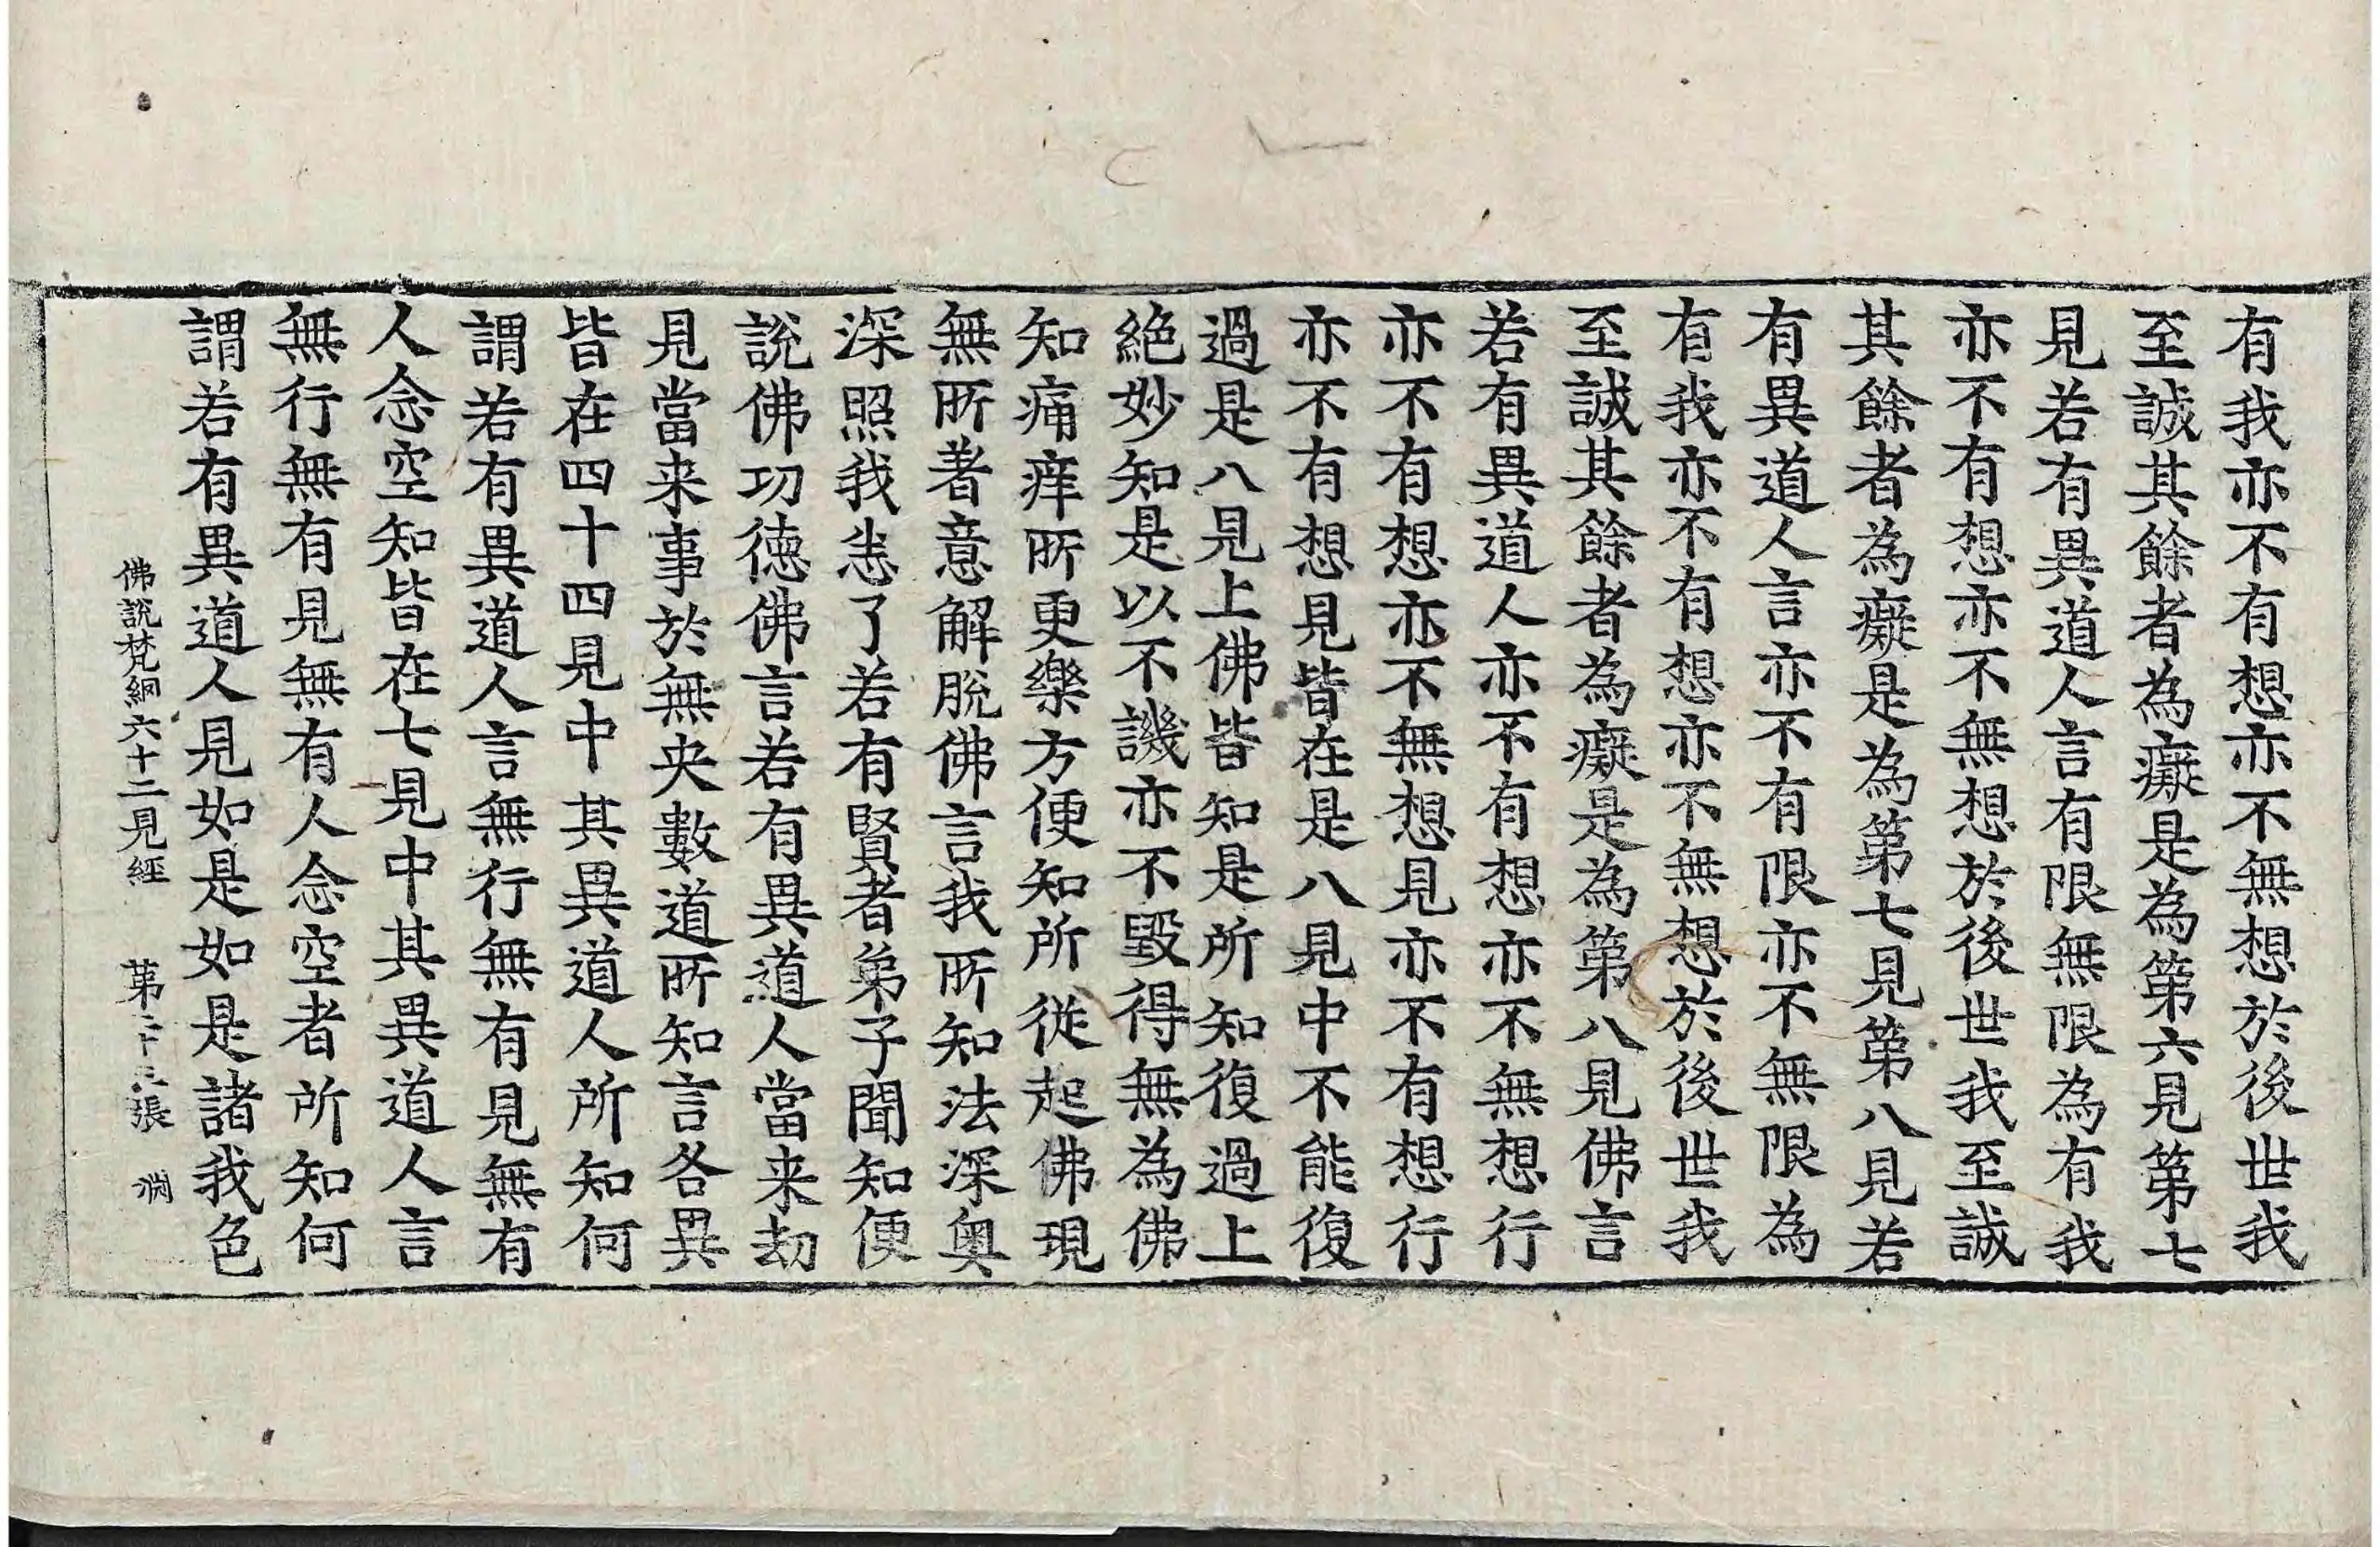 有我亦不有想亦不無想於後世我
至誠其餘者為癡是為第六見第七
見若有異道人言有限無限為有我
亦不有想亦不無想於後世我至誠
其餘者為癡是為第七見第八見若
有異道人言亦不有限亦不無限為
有我亦不有想亦不無想於後世我
至誠其餘者為癡是為第八見佛言
若有異道人亦不有想亦不無想行
亦不有想亦不無想見亦不有想行
亦不有想見皆在是八見中不能復
過是八見上佛皆知是所知復過上
絶妙知是以不譏亦不毀得無為佛
知痛痒所更樂方便知所從起佛現
無所著意解脫佛言我所知法深奧
深照我悉了若有賢者弟子聞知便
說佛功徳佛言若有異道人當来劫
見當来事於無央數道所知言各異
皆在四十四見中其異道人所知何
謂若有異道人言無行無有見無有
人念空知皆在七見中其異道人言
無行無有見無有人念空者所知何
謂若有異道人見如是如是諸我色
佛說梵網六十二見經 第二十三張 渕